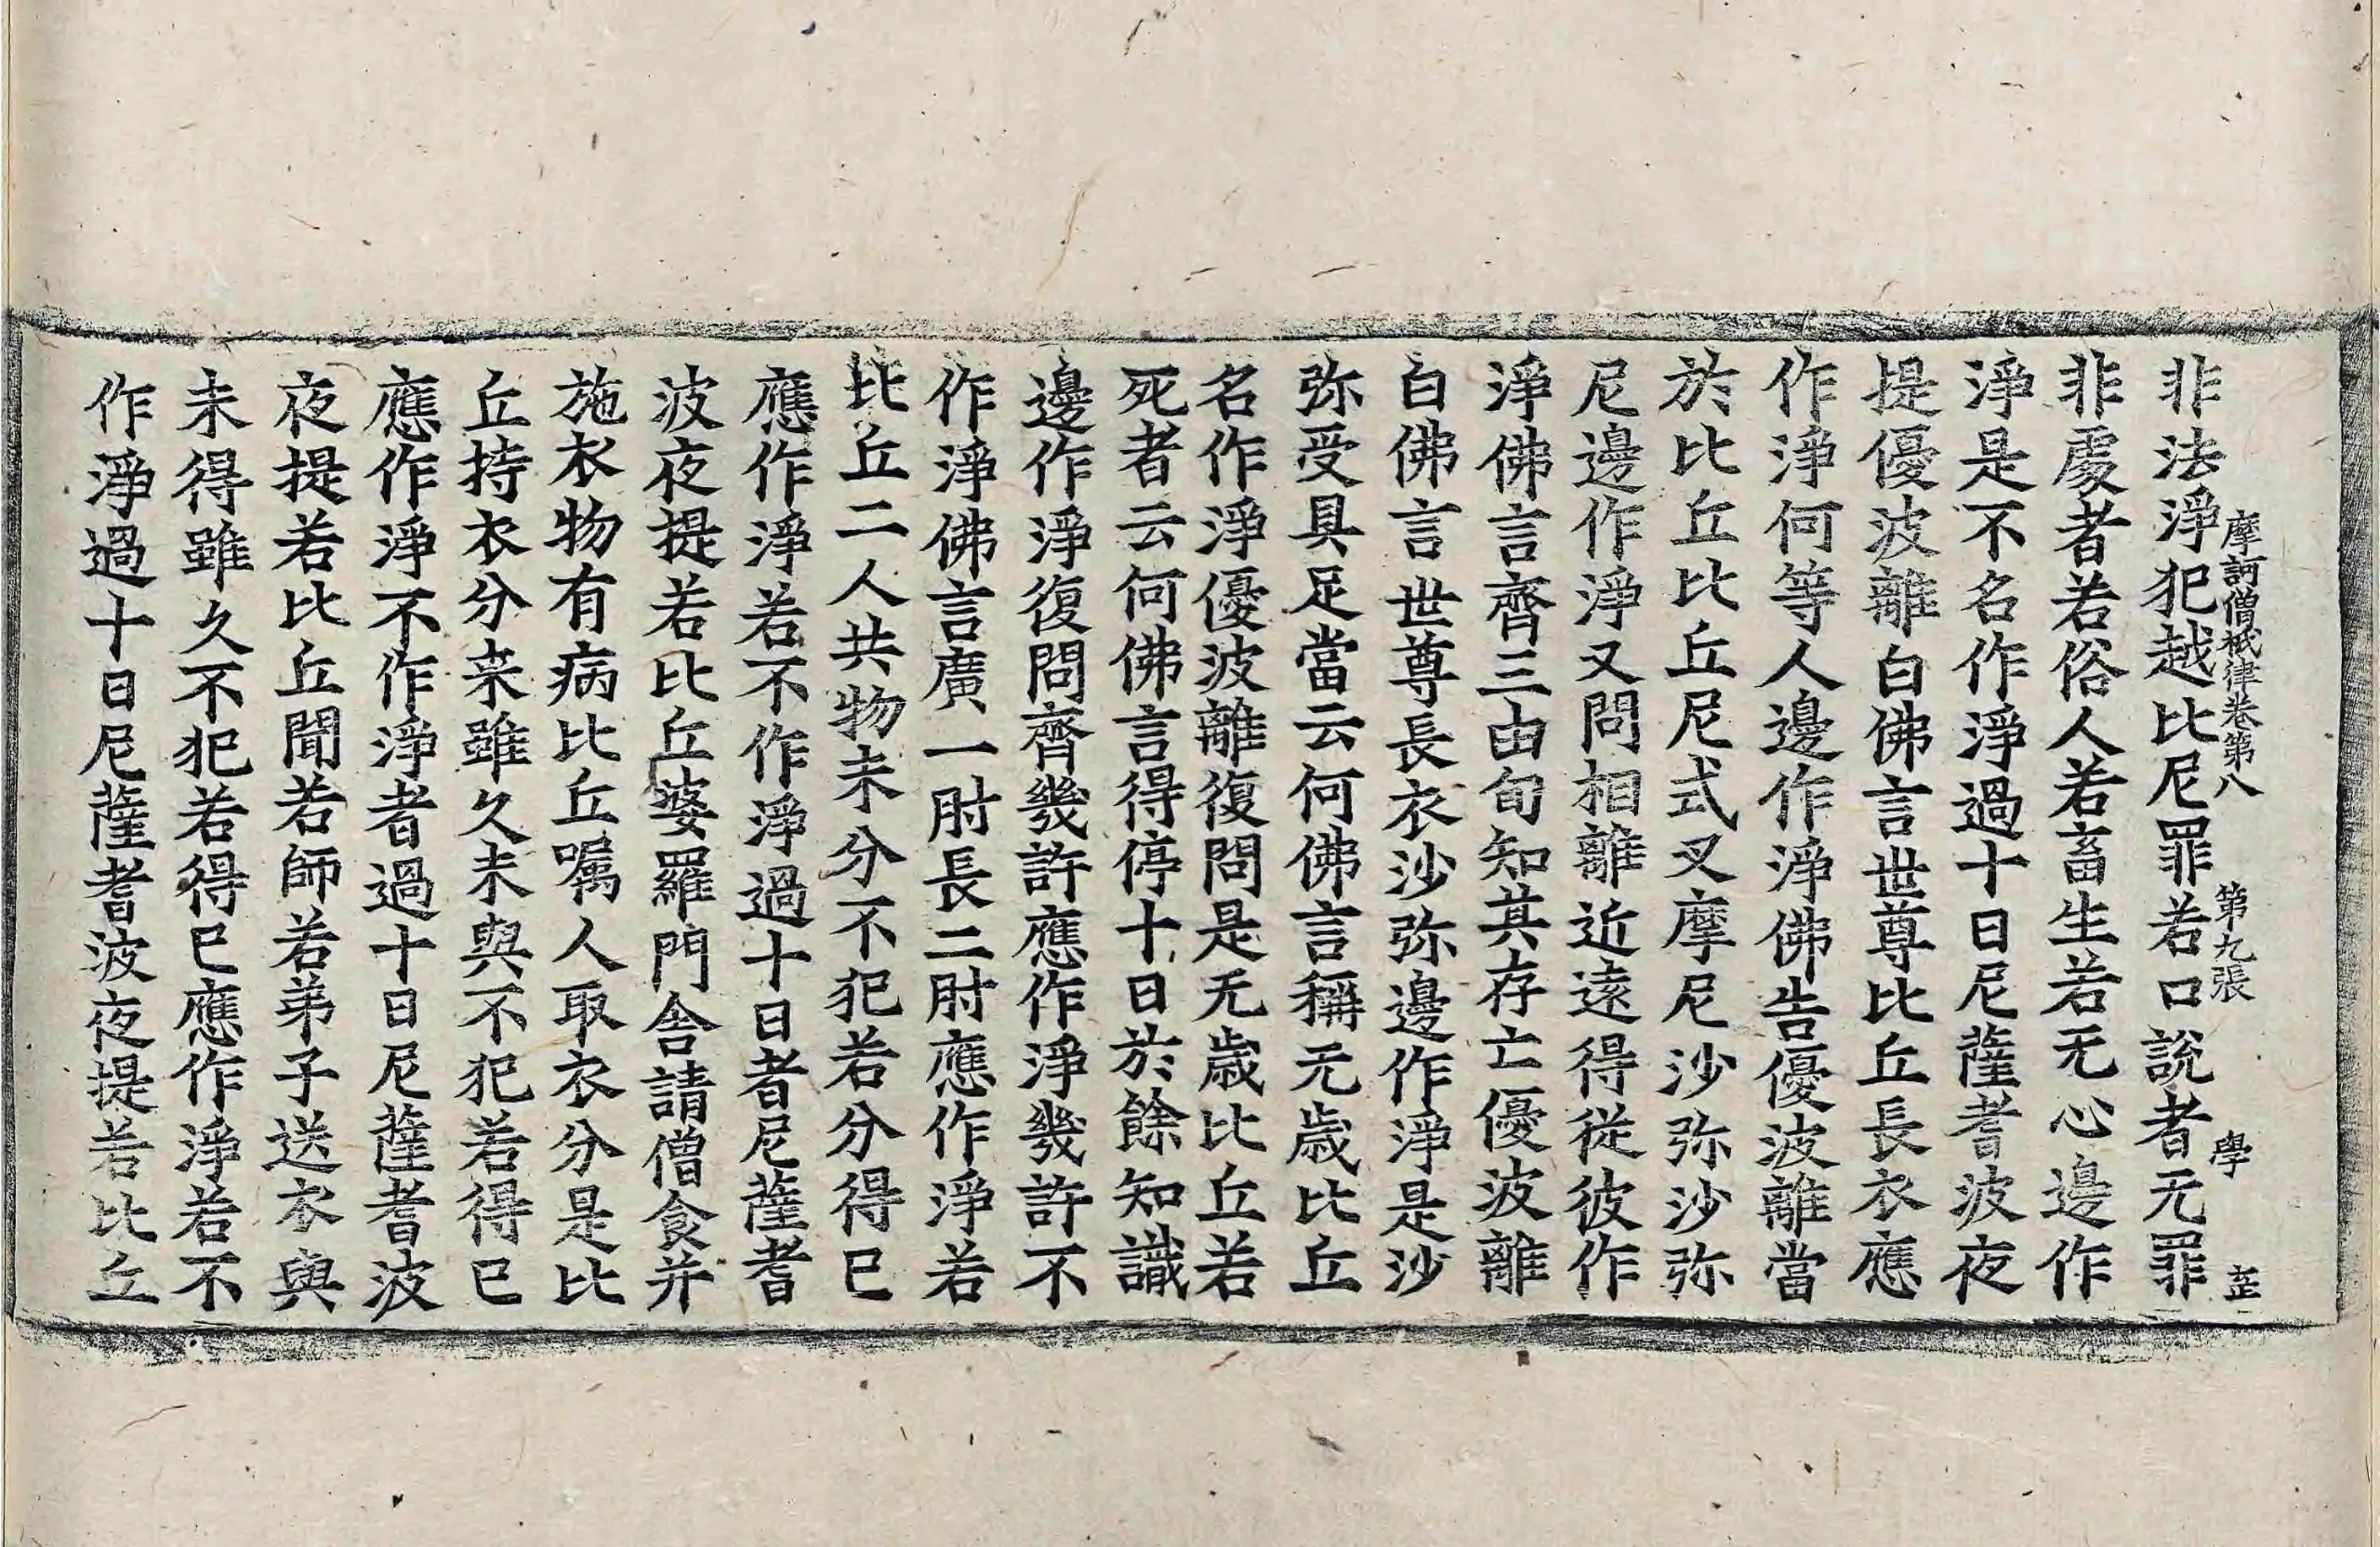 摩訶僧祇律卷第八 第九張 學
非法淨犯越比尼罪若口說者无罪
非處者若俗人若畜生若无心邊作
淨是不名作淨過十日尼薩耆波夜
提優波離白佛言世尊比丘長衣應
作淨何等人邊作淨佛告優波離當
於比丘比丘尼式叉摩尼沙弥沙弥
尼邊作淨又問相離近遠得從彼作
淨佛言齊三由旬知其存亡優波離
白佛言世尊長衣沙弥邊作淨是沙
弥受具足當云何佛言稱无歲比丘
名作淨優波離復問是无歲比丘若
死者云何佛言得停十日於餘知識
邊作淨復問齊幾許應作淨幾許不
作淨佛言廣一肘長二肘應作淨若
比丘二人共物未分不犯若分得已
應作淨若不作淨過十日者尼薩耆
波夜提若比丘婆羅門舍請僧食并
施衣物有病比丘囑人取衣分是比
丘持衣分来雖久未與不犯若得已
應作淨不作淨者過十日尼薩耆波
夜提若比丘聞若師若弟子送衣與
未得雖久不犯若得已應作淨若不
作淨過十日尼薩耆波夜提若比丘